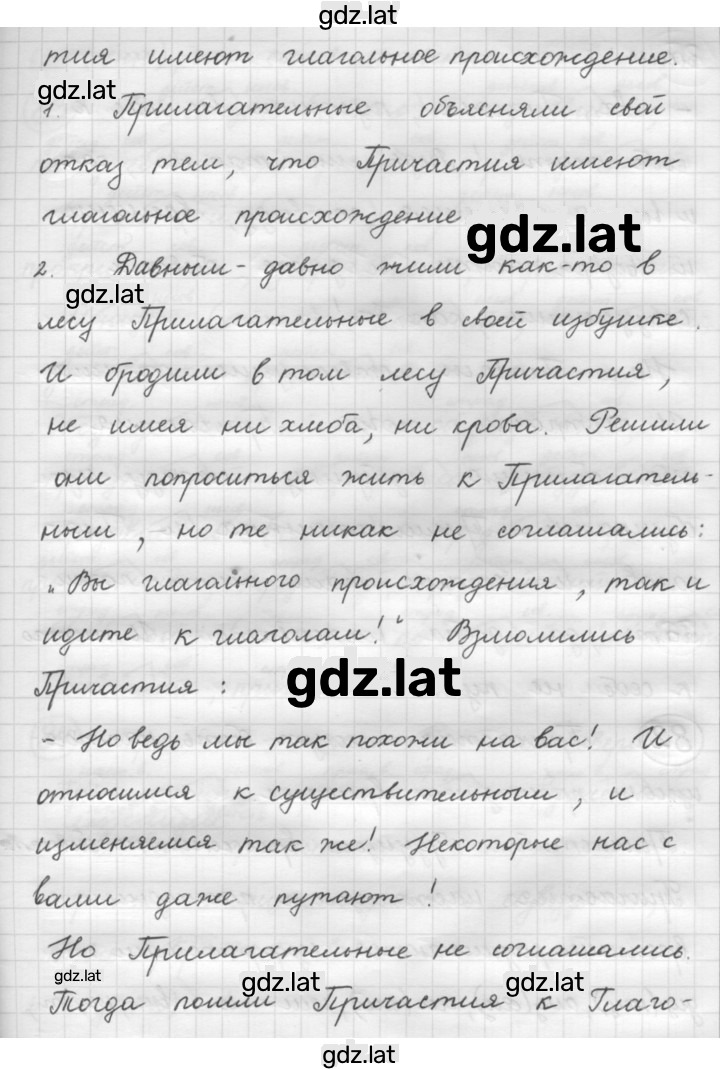 gdz.lat
тия имеют глагольное происхождение.
gdz.lat
1. Прилагательные объясняли свой
отказ тем, что Причастия имеют
глагольное происхождение
gdz.lat
2. Давным-давно жили как-то в
gdz.lat
лесу Прилагательные в своей избушке.
И бродили в том лесу Причастия,
не имея ни хлеба, ни крова. Решили
они попроситься жить к Прилагатель-
ным, но те никак не соглашались:
„Вы глагольного происхождения, так и
идите к глаголам!“ Взмолились
Причастия:
gdz.lat
- Но ведь мы так похожи на вас! И
относимся к существительным, и
изменяемся так же! Некоторые нас с
вами даже путают!
Но Прилагательные не соглашались.
gdz.lat
gdz.lat
gdz.lat
Тогда пошли Причастия к Глаго-
gdz.lat